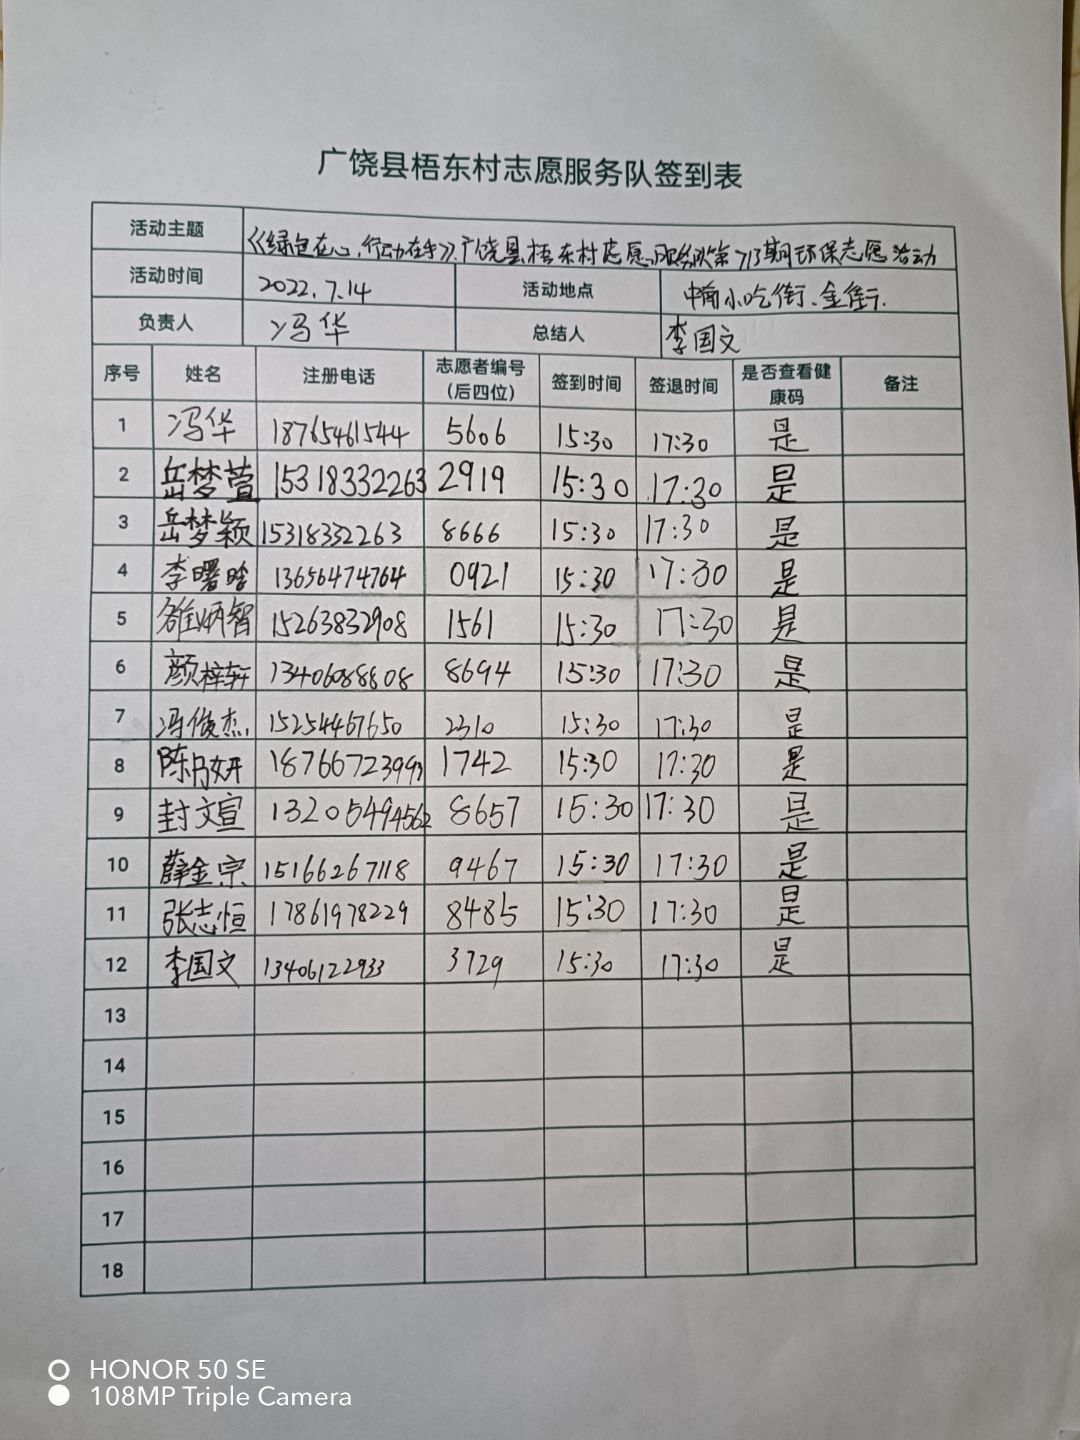 广饶县梧东村志愿服务队签到表
活动主题 《绿色在心,行动在手》广饶县梧东村志愿服务队第713期环保志愿活动
活动时间 2022.7.14 活动地点 中南小吃街、金街.
负责人 冯华 总结人 李国文
序号 姓名 注册电话 志愿者编号(后四位) 签到时间 签退时间 是否查看健康码 备注
1 冯华 18765461544 5606 15:30 17:30 是
2 岳梦萱 15318332263 2919 15:30 17:30 是
3 岳梦颖 15318332263 8666 15:30 17:30 是
4 李曙晗 13656474764 0921 15:30 17:30 是
5 炳智 15263832908 1561 15:30 17:30 是
6 颜梓轩 13406088808 8694 15:30 17:30 是
7 冯俊杰 15254467650 2310 15:30 17:30 是
8 陈妍 18766723993 1742 15:30 17:30 是
9 封文宣 13205494562 8657 15:30 17:30 是
10 薛金宗 15166267118 9467 15:30 17:30 是
11 张志恒 17861978229 8485 15:30 17:30 是
12 李国文 13406122933 3729 15:30 17:30 是
13
14
15
16
17
18
HONOR 50 SE
108MP Triple Camera